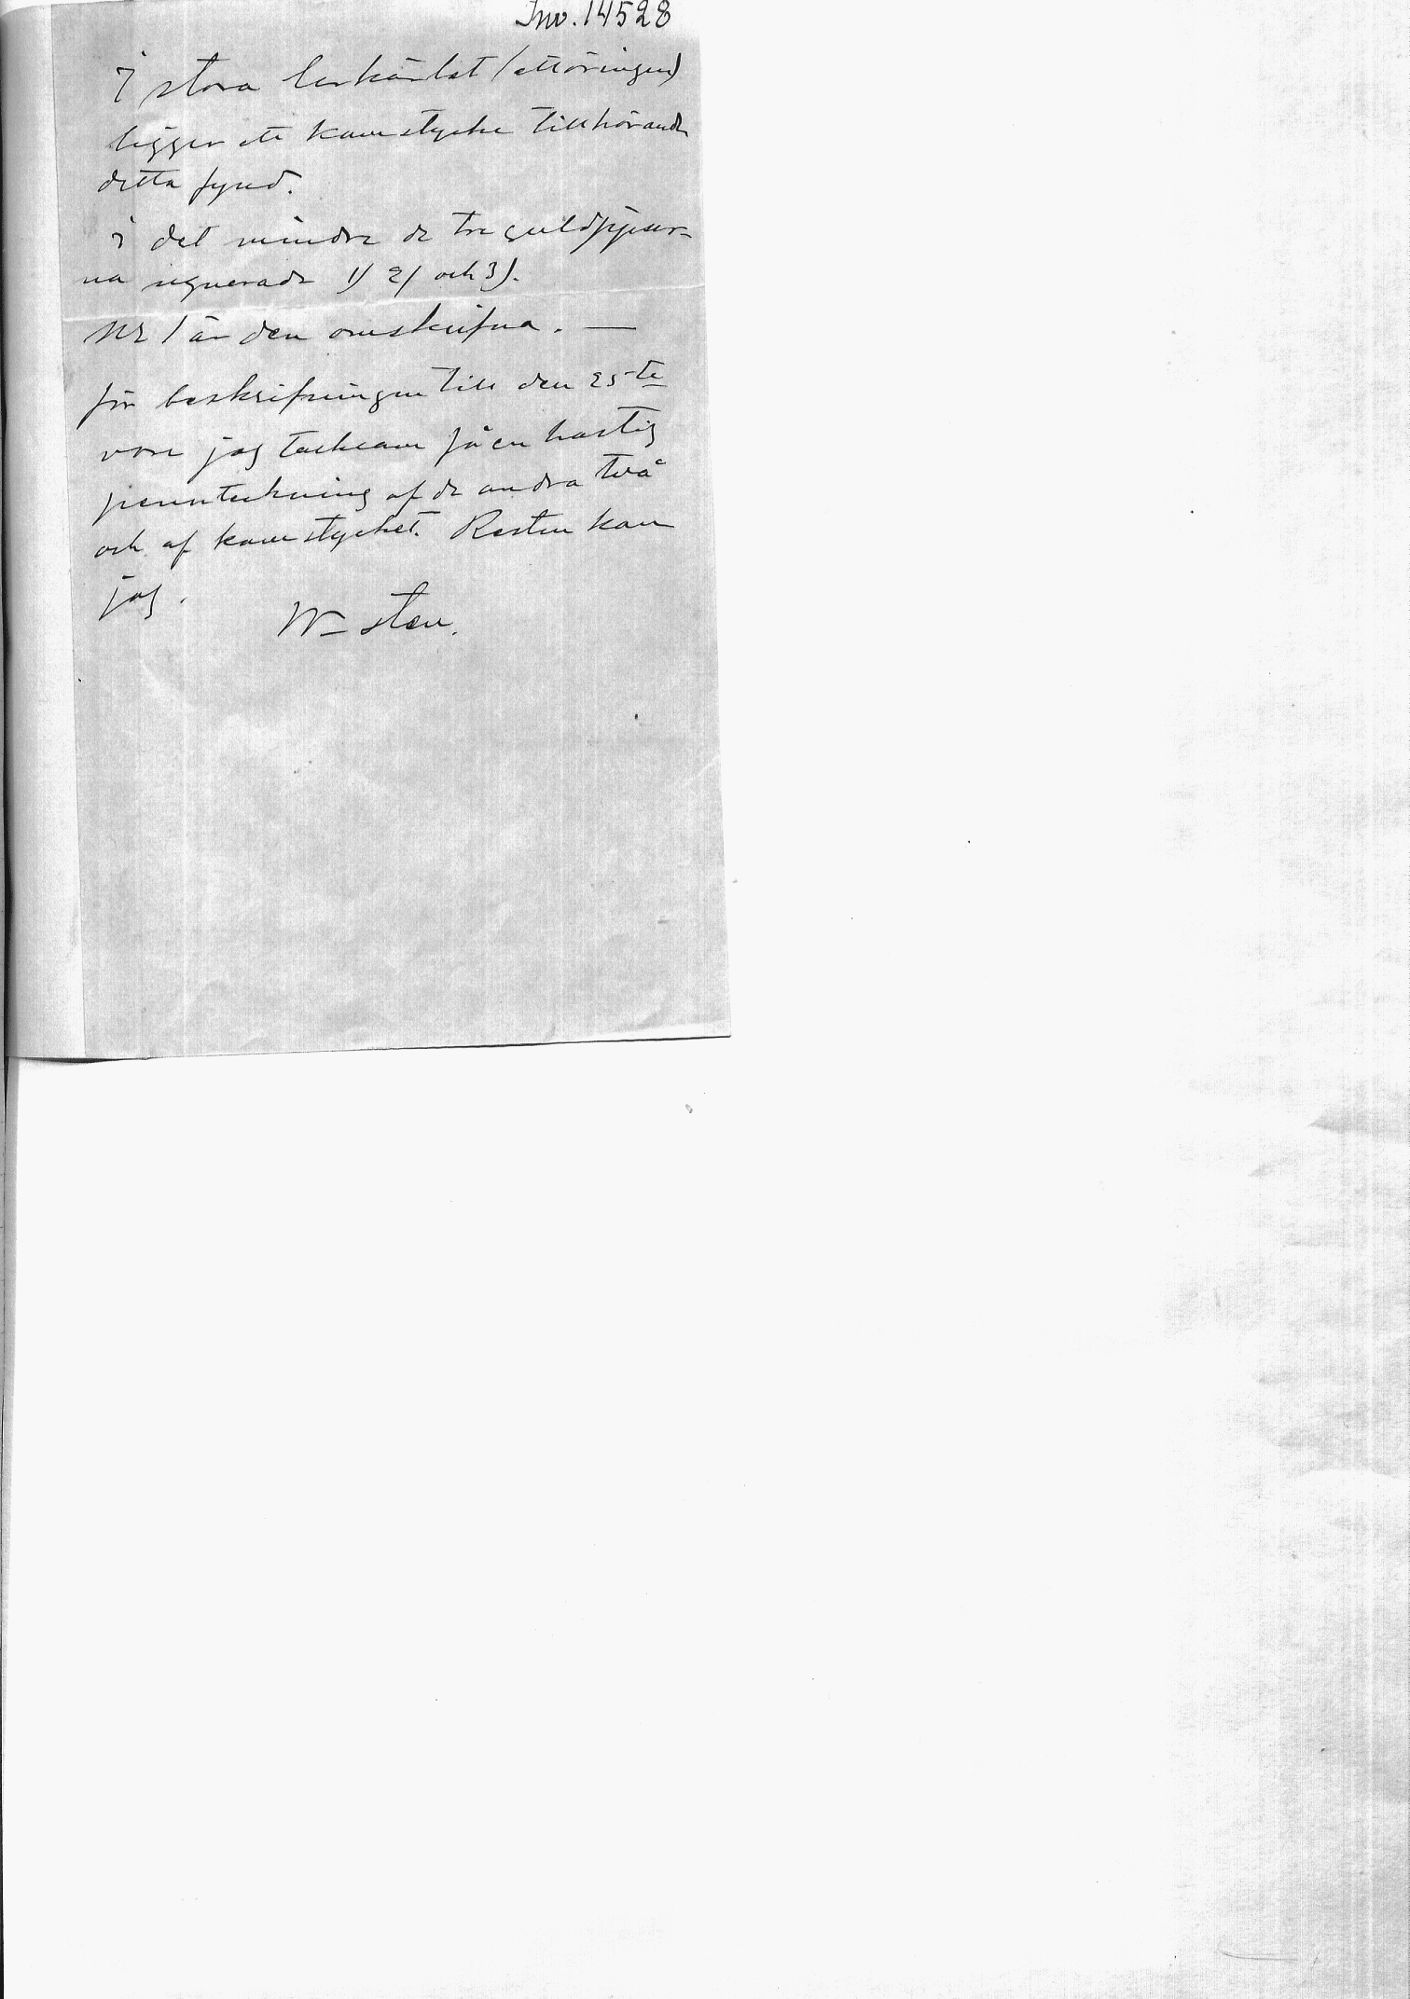 Inv. 14528
I stora lerkärlet (ettöringen)
ligger ett kamstycke tillhörande
detta fynd.
i det mindre de tre guldpjeser-
na signerade 1/ 2/ och 3).
Nr 1 är den omskrifna. —
för beskrifningen till den 25-te
vore jag tacksam få en hastig
pennteckning af de andra två
och af kamstycket. Resten kan
jag.
W- sten.